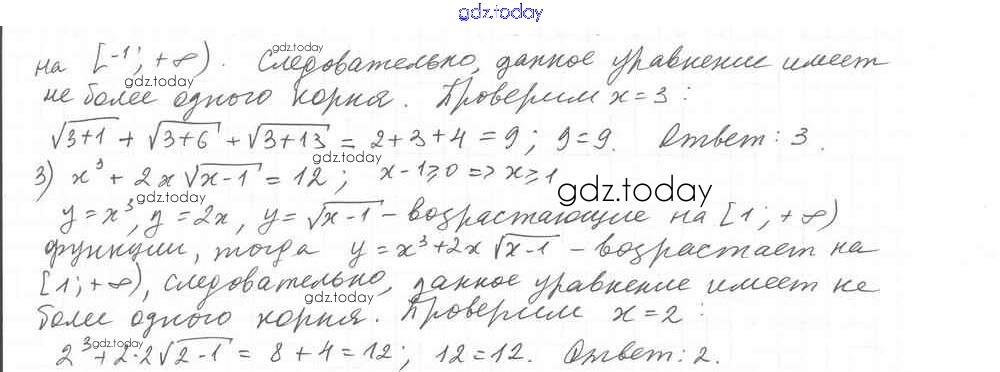 gdz.today
на [-1; +∞). Следовательно, данное уравнение имеет
не более одного корня. Проверим x=3:
√(3+1) + √(3+6) + √(3+13) = 2+3+4 = 9; 9=9. Ответ: 3.
3) x³ + 2x√(x-1) = 12; x-1≥0 => x≥1
y=x³, y=2x, y=√(x-1) – возрастающие на [1; +∞)
функции, тогда y=x³+2x√(x-1) – возрастает на
[1; +∞), следовательно, данное уравнение имеет не
более одного корня. Проверим x=2:
2³+2·2√(2-1) = 8+4=12; 12=12. Ответ: 2.
gdz.today
gdz.today
gdz.today
gdz.today
gdz.today
gdz.today
gdz.today
gdz.today